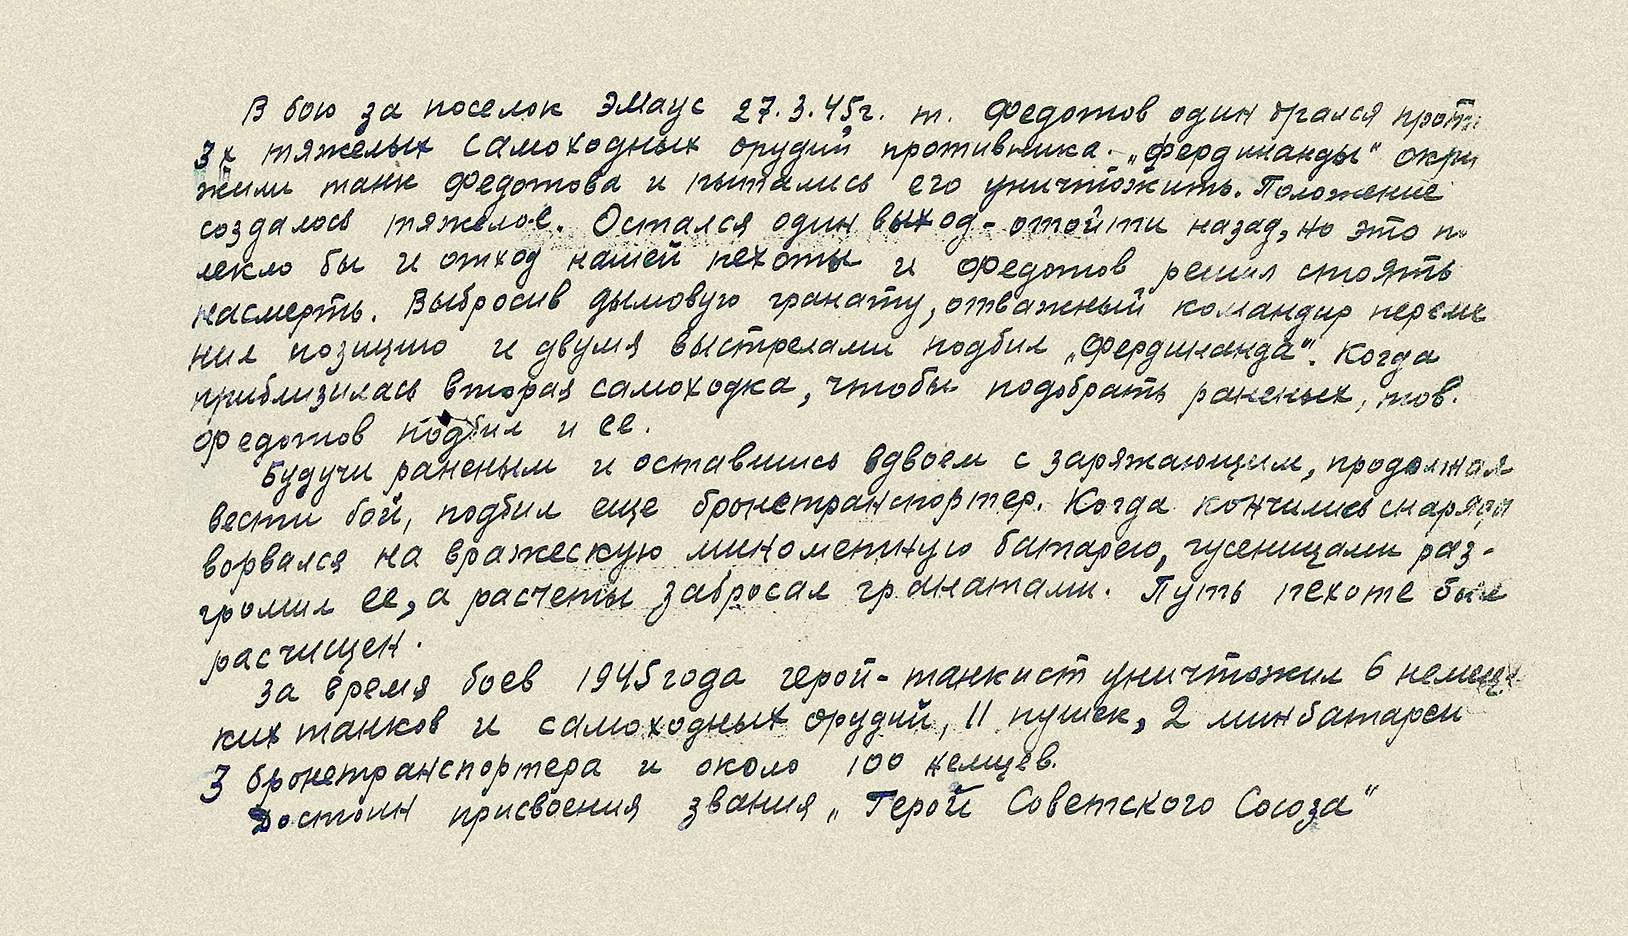 В бою за поселок Эмаус 27.3.45г. т. Федотов один дрался
3х тяжелых самоходных орудий противника. „Фердинанды"
жили танк Федотова и пытались его уничтожить. Положение
создалось тяжелое. Остался один выход - отойти назад, но это
лекло бы и отход нашей пехоты и Федотов решил стоять
насмерть. Выбросив дымовую гранату, отважный командир переме
нил позицию и двумя выстрелами подбил „Фердинанда". Когда
приблизилась вторая самоходка, чтобы подобрать раненых, тов.
Федотов подбил и ее.
Будучи раненым и оставшись вдвоем с заряжающим, продолжал
вести бой, подбил еще бронетранспортер. Когда кончились снаряды
ворвался на вражескую минометную батарею, гусеницами раз-
громил ее, а расчеты забросал гранатами. Путь пехоте был
расчищен.
За время боев 1945 года герой-танкист уничтожил 6 немец
ких танков и самоходных орудий, 11 пушек, 2 минбатареи
3 бронетранспортера и около 100 немцев.
Достоин присвоения звания „Герой Советского Союза"